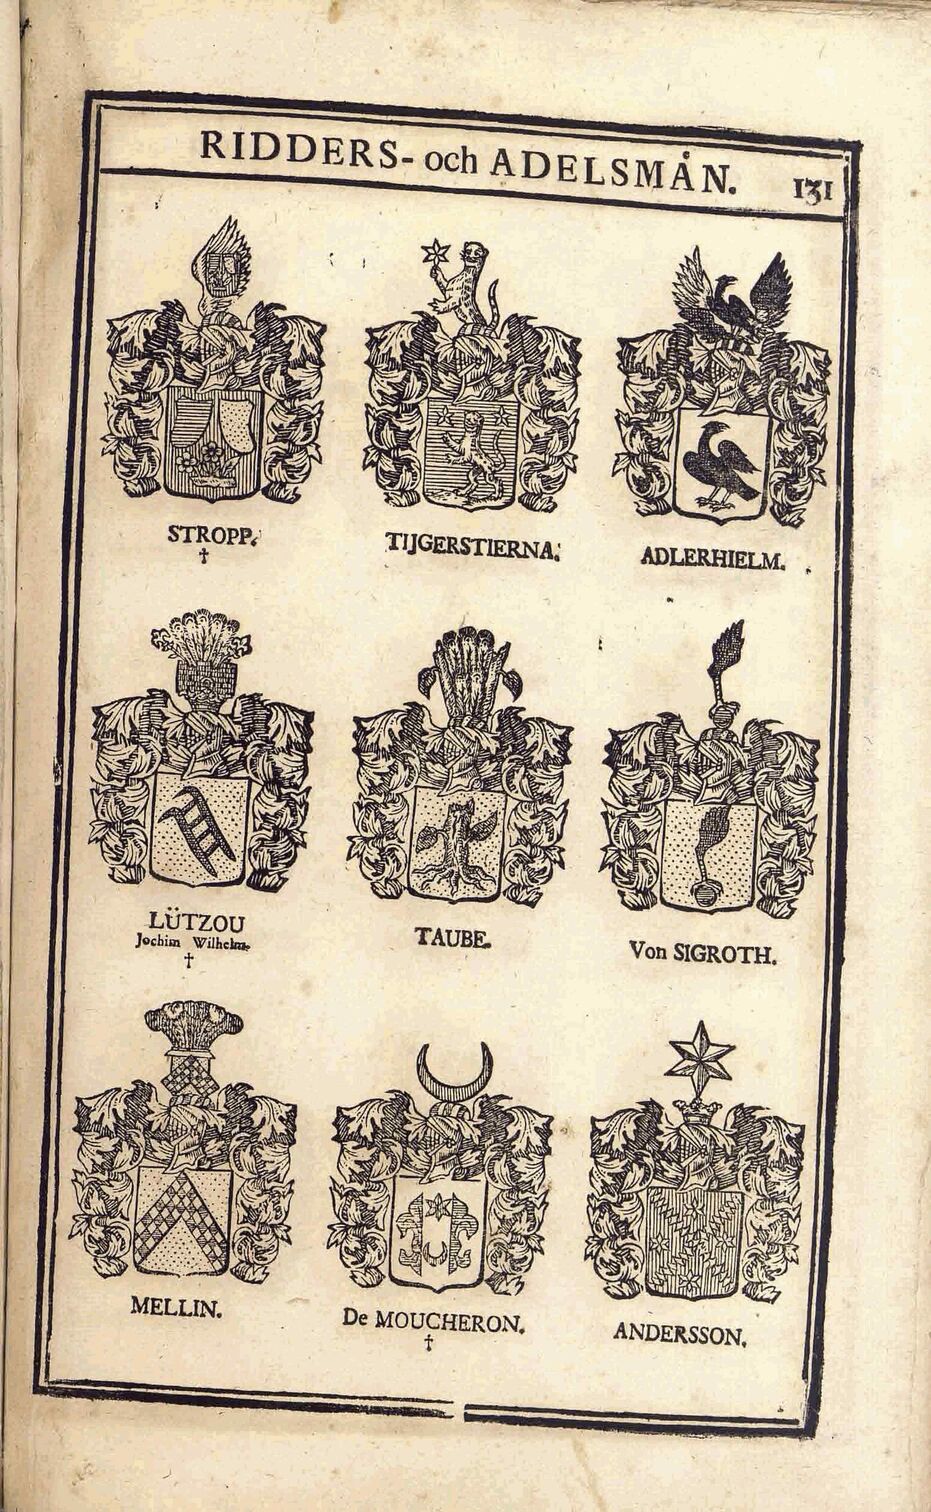 RIDDERS- och ADELSMÅN.
131
STROPP.
†
TIJGERSTIERNA.
ADLERHIELM.
LÜTZOU
Jochim Wilhelm.
†
TAUBE.
Von SIGROTH.
MELLIN.
De MOUCHERON.
†
ANDERSSON.